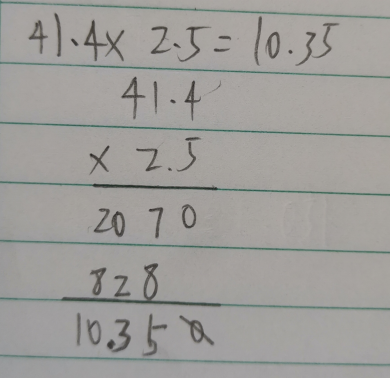 41.4x 2.5=10.35
41.4
x 2.5
2070
828
10.350